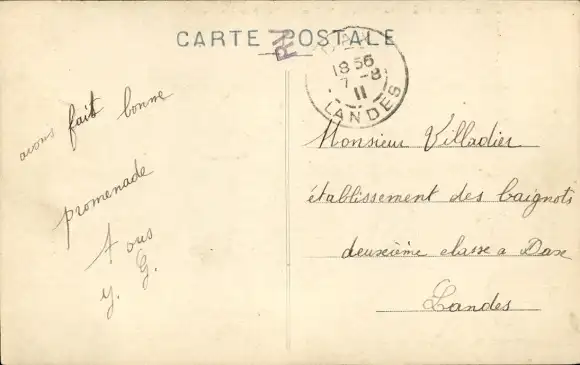 CARTE POSTALE
DAX
18 56
7 -8
11
LANDES
avons fait bonne
promenade
tous
y. G.
Monsieur Villadier
établissement des baignots
deuxième classe a Dax
Landes